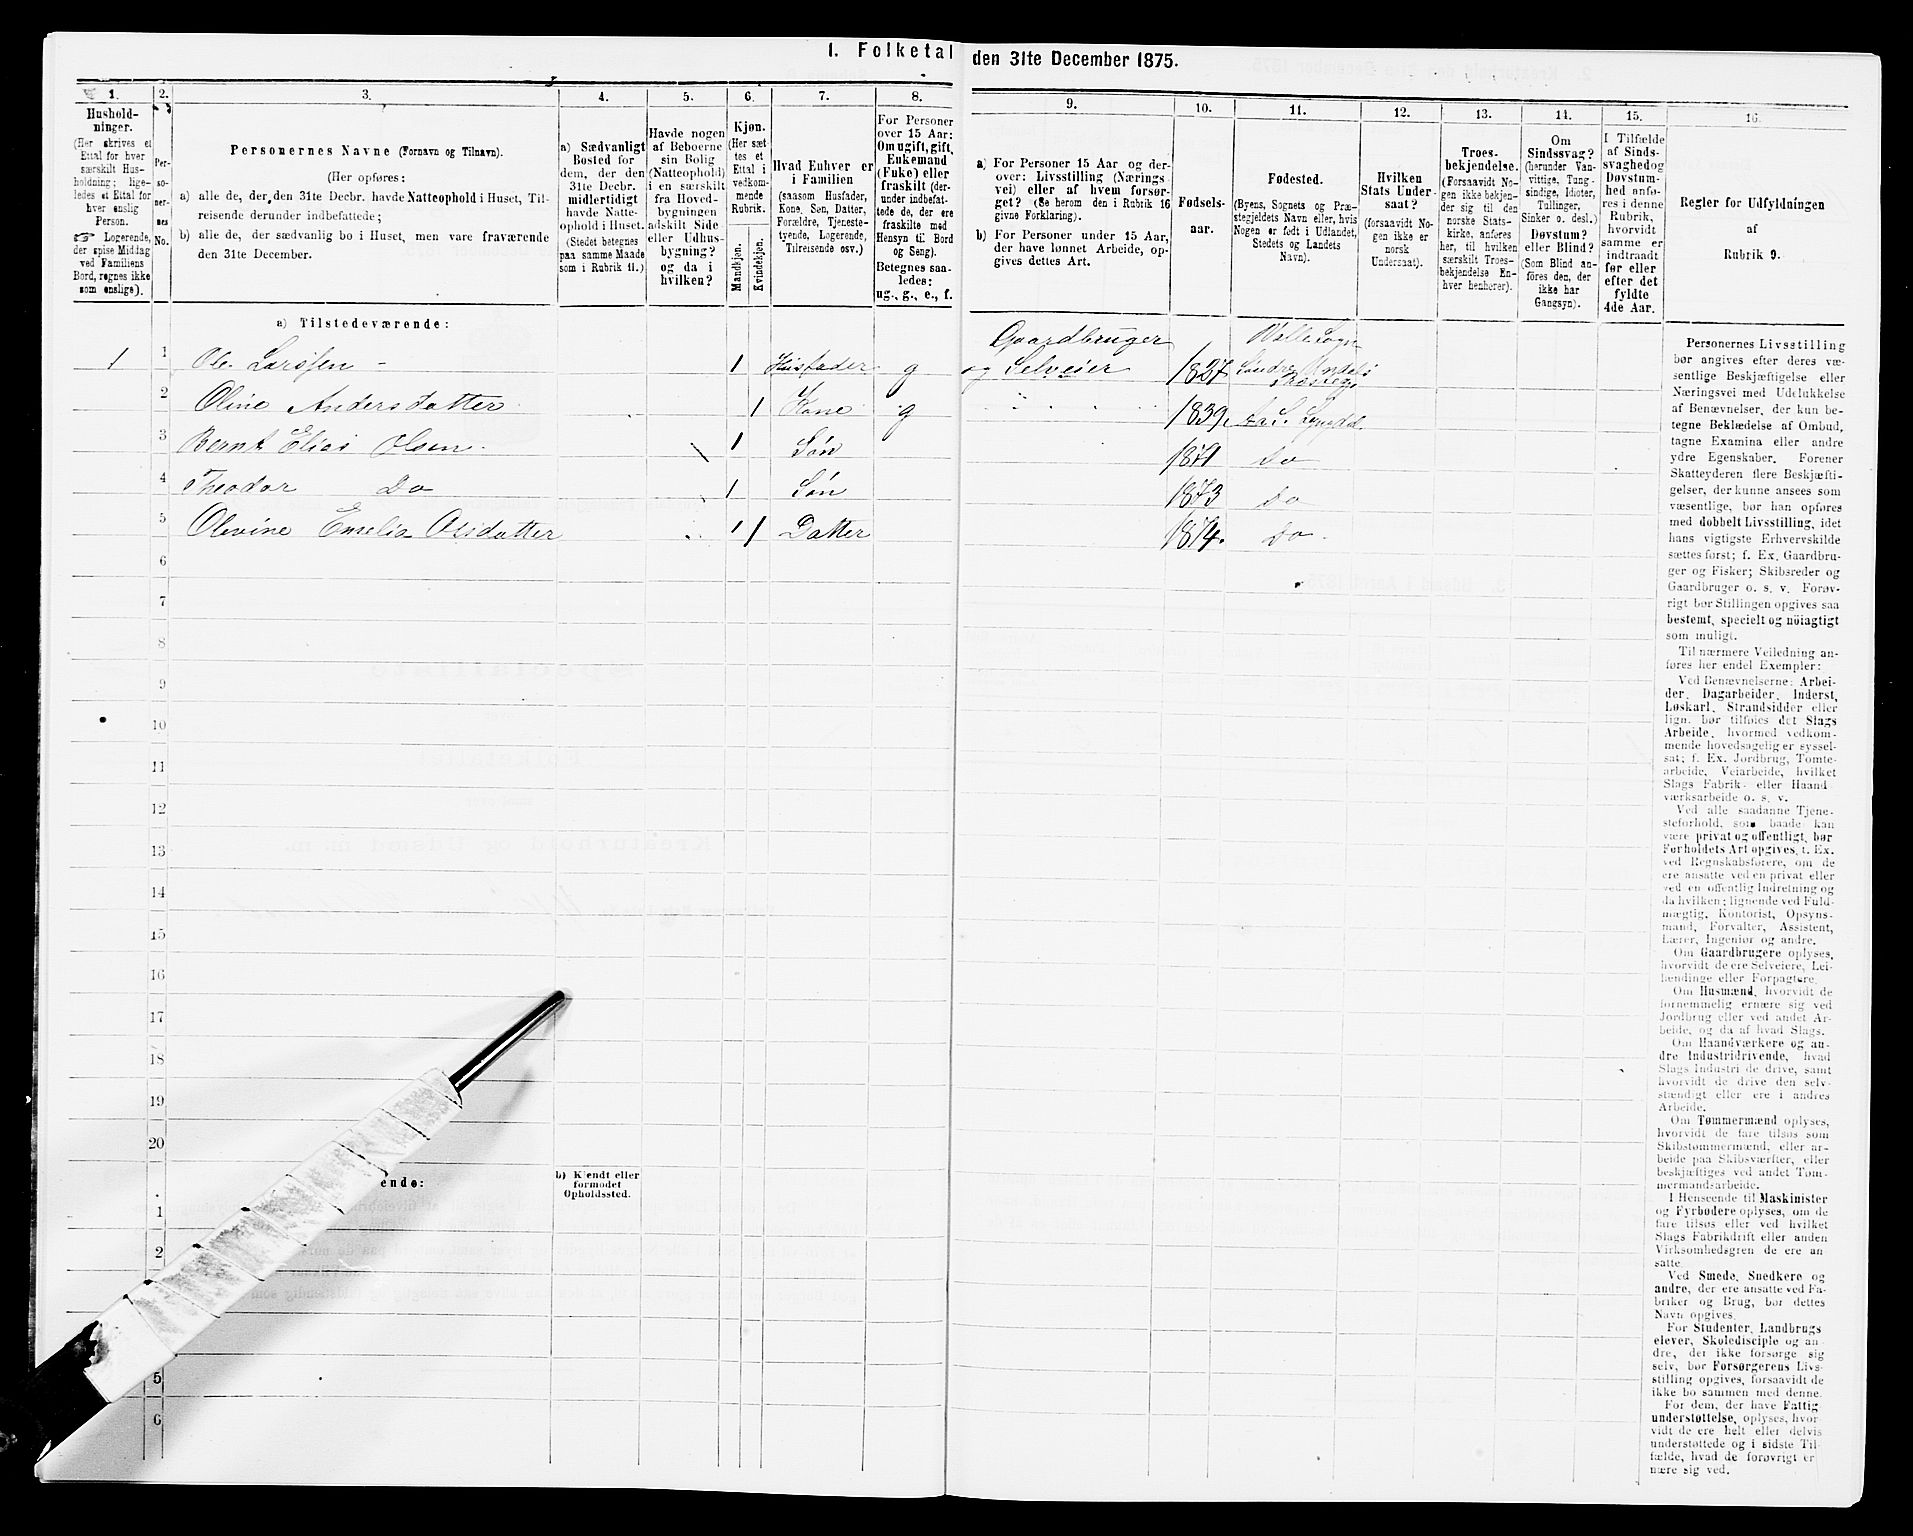 1. Folketal den 31te December 1875.
1.
Hushold-
ninger.
(Her skrives et
Ettal for hver
særskilt Hus-
holdning; lige-
ledes et Ettal for
hver enslig
Person.
☞ Logerende,
der spise Middag
ved Familiens
Bord, regnes ikke
som enslige).
2.
Per-
so-
ner-
nes
No.
3.
Personernes Navne (Fornavn og Tilnavn).
(Her opføres:
a) alle de, der den 31te Decbr. havde Natteophold i Huset, Til-
reisende derunder indbefattede;
b) alle de, der sædvanlig bo i Huset, men vare fraværende
den 31te December.
4.
a) Sædvanligt
Bosted for
dem, der den
31te Decbr.
midlertidigt
havde Natte-
ophold i Huset.
(Stedet betegnes
paa samme Maade
som i Rubrik 11.)
5.
Havde nogen
af Beboerne
sin Bolig
(Natteophold)
i en særskilt
fra Hoved-
bygningen
adskilt Side
eller Udhus-
bygning?
og da i
hvilken?
6.
Kjøn.
(Her sæt-
tes et
Ettal i
vedkom-
mende
Rubrik.
Mandkjøn.
Kvindekjøn.
7.
Hvad Enhver er
i Familien
(saasom Husfader,
Kone, Søn, Datter,
Forældre, Tjeneste-
tyende, Logerende,
Tilreisende osv.)
8.
For Personer
over 15 Aar:
Om ugift, gift,
Enkemand
(Enke) eller
fraskilt (der-
under indbefat-
tede de, der ere
fraskilte med
Hensyn til Bord
og Seng).
Betegnes saa-
ledes:
ug., g., e., f.
9.
a) For Personer 15 Aar og der-
over: Livsstilling (Nærings-
vei) eller af hvem forsør-
get? (Se herom den i Rubrik 16
givne Forklaring).
b) For Personer under 15 Aar,
der have lønnet Arbeide, op-
gives dettes Art.
10.
Fødsels-
aar.
11.
Fødested.
(Byens, Sognets og Præ-
stegjeldets Navn eller, hvis
Nogen er født i Udlandet,
Stedets og Landets
Navn).
12.
Hvilken
Stats Under-
saat?
(forsaavidt No-
gen ikke er
norsk
Undersaat).
13.
Troes-
bekjendelse.
(Forsaavidt No-
gen ikke bekjen-
der sig til den
norske Stats-
kirke, anføres
her, til hvilken
særskilt Troes-
bekjendelse En-
hver henhører).
14.
Om
Sindssvag?
(herunder Van-
vittige, Tung-
sindige, Idioter,
Tullinger,
Sinker o. desl.)
Døvstum?
eller Blind?
(Som Blind an-
føres den, der
ikke har
Gangsyn).
15.
I Tilfælde
af Sinds-
svaghed og
Døvstum-
hed anfø-
res i denne
Rubrik,
hvorvidt
samme er
indtraadt
før eller
efter det
fyldte
4de Aar.
16.
Regler for Udfyldningen
af
Rubrik 9.
a) Tilstedeværende:
1 1 Ole Larssen - 1 Husfader g Gaardbruger og Selveier 1827 Valle Sogn Søndre Undals Præsteg
2 Oline Andersdatter 1 Kone g 1839. Aa S. Lyngdal
3 Bernt Elias Olsen 1 Søn 1871 Do
4 Theodor Do 1 Søn 1873 Do
5 Olevine Emelia Olsdatter 1 Datter 1874. Do
6
7
8
9
10
11
12
13
14
15
16
17
18
19
20
ende:
b) Kjendt eller
formodet
Opholdssted.
1
2
5
6
Personernes Livsstilling
bør angives efter deres væ-
sentlige Beskjæftigelse eller
Næringsvei med Udelukkelse
af Benævnelser, der kun be-
tegne Beklædelse af Ombud,
tagne Examina eller andre
ydre Egenskaber. Forener
Skatteyderen flere Beskjæfti-
gelser, der kunne ansees som
væsentlige, bør han opføres
med dobbelt Livsstilling, idet
hans vigtigste Erhvervskilde
sættes først; f. Ex. Gaardbru-
ger og Fisker; Skibsreder og
Gaardbruger o. s. v. Forøv-
rigt bør Stillingen opgives saa
bestemt, specielt og nöiagtigt
som muligt.
Til nærmere Veiledning an-
føres her endel Exempler:
Ved Benævnelserne: Arbei-
der, Dagarbeider, Inderst,
Løskarl, Strandsidder eller
lign. bør tilføies det Slags
Arbeide, hvormed vedkom-
mende hovedsagelig er syssel-
sat; f. Ex. Jordbrug, Tomte-
arbeide, Veiarbeide, hvilket
Slags Fabrik- eller Haand-
værksarbeide o. s. v.
Ved alle saadanne Tjene-
steforhold, som baade kan
være privat og offentligt, bør
Forholdets Art opgives, t. Ex.
ved Regnskabsførere, om de
ere ansatte ved en privat eller
ved en offentlig Indretning og
da hvilken; lignende ved Fuld-
mægtig, Kontorist, Opsyns-
mand, Forvalter, Assistent,
Lærer, Ingeniør og andre.
Om Gaardbrugere oplyses,
hvorvidt de ere Selveiere, Lei-
lændinge eller Forpagtere.
Om Husmænd, hvorvidt de
fornemmelig ernære sig ved
Jordbrug eller ved andet Ar-
beide, og da af hvad Slags.
Om Haandværkere og an-
dre Industridrivende, hvad
Slags Industri de drive, samt
hvorvidt de drive den selv-
stændigt eller ere i andres
Arbeide.
Om Tømmermænd oplyses,
hvorvidt de fare tilsøs som
Skibstømmermænd, eller ar-
beide paa Skibsværfter, eller
beskjæftiges ved andet Tøm-
mermandsarbeide.
I Henseende til Maskinister
og Fyrbødere oplyses, om de
fare tilsøs eller ved hvilket
Slags Fabrikdrift eller anden
Virksomhedsgren de ere an-
satte.
Ved Smede, Snedkere og
andre, der ere ansatte ved Fa-
briker og Brug, bør dettes
Navn opgives.
For Studenter, Landbrugs-
elever, Skoledisciple og an-
dre, der ikke forsørge sig
selv, bør Forsørgerens Livs-
stilling opgives, forsaavidt de
ikke bo sammen med denne.
For dem, der have Fattig-
understøttelse, oplyses, hvor-
vidt de ere helt eller delvis
understøttede og i sidste Til-
fælde, hvad de forøvrigt er-
nære sig ved.